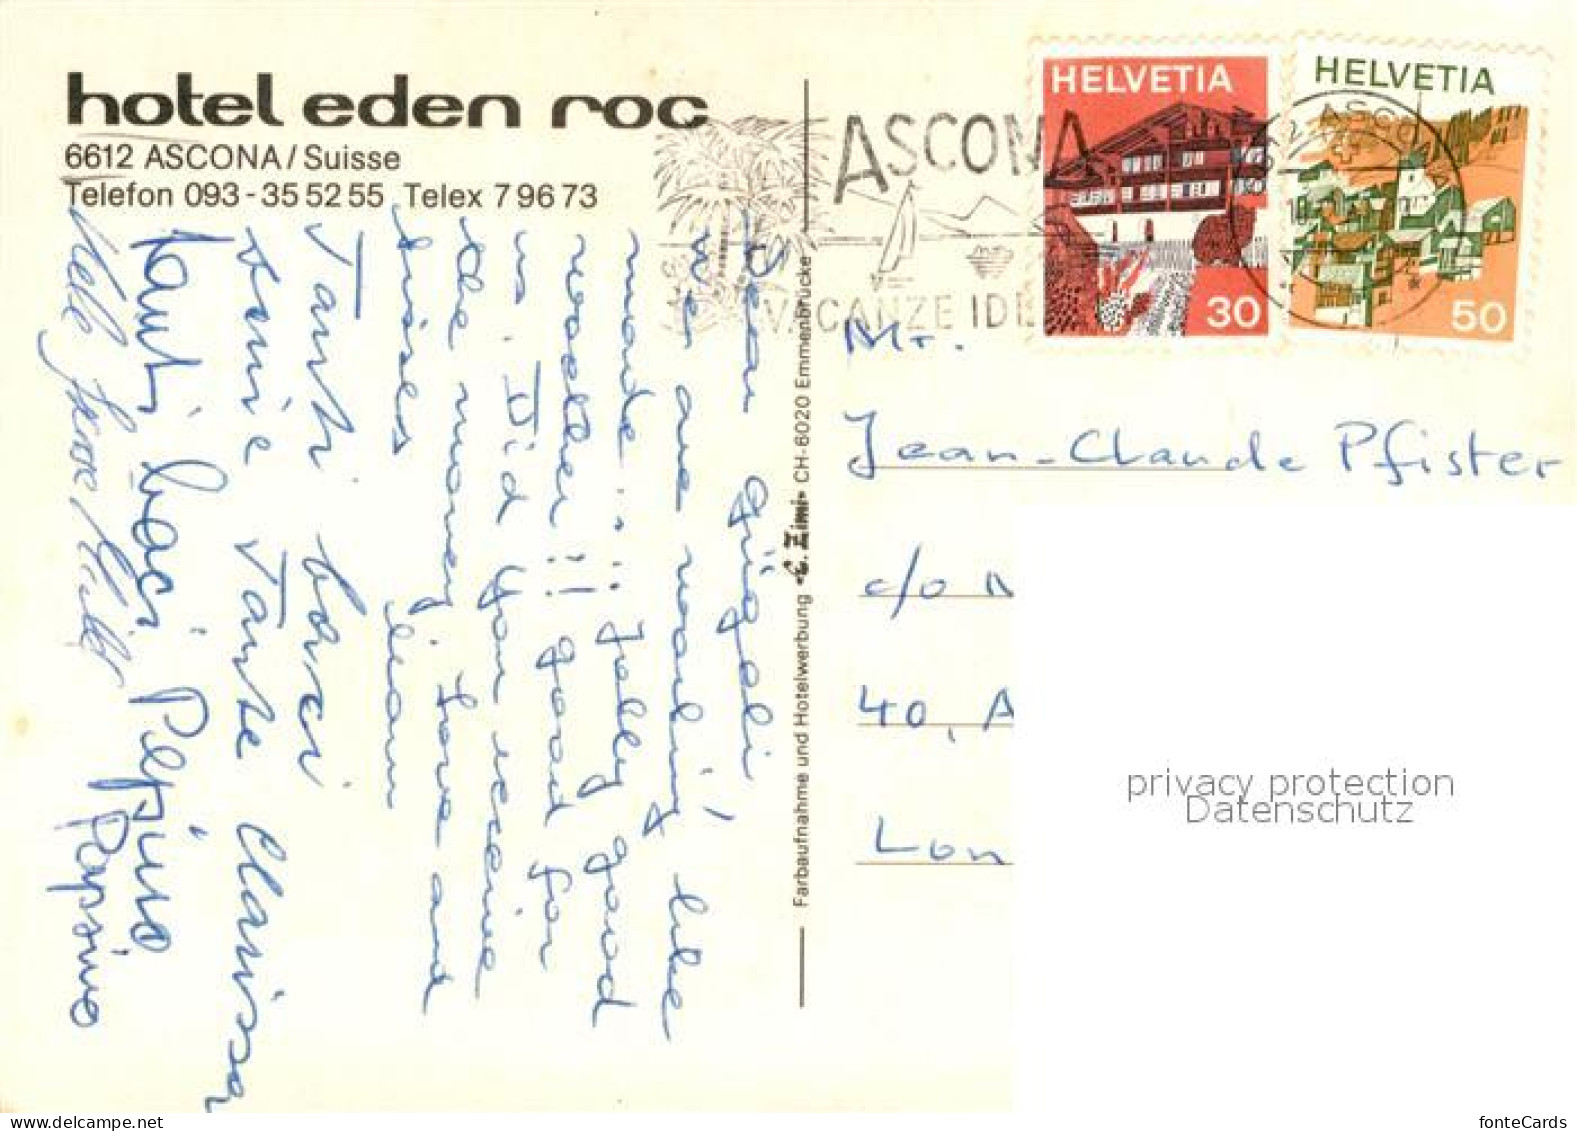 hotel eden roc
6612 ASCONA/Suisse
Telefon 093-35 52 55 Telex 7 96 73
ASCONA
VACANZE IDE
HELVETIA
30
HELVETIA
50
ASCO
Dear güügeli!
We are working like
made... Jolly good
weather!! good for
us. Did you receive
the money. Love and
kisses
Tanti baci
Tante Clarissa
Tanti baci Peppino
Papsino
Farbaufnahme und Hotelwerbung «C. Zimi» CH-6020 Emmenbrücke
Mr.
Jean-Claude Pfister
c/o
40, A
Lon
privacy protection
Datenschutz
fonteCards